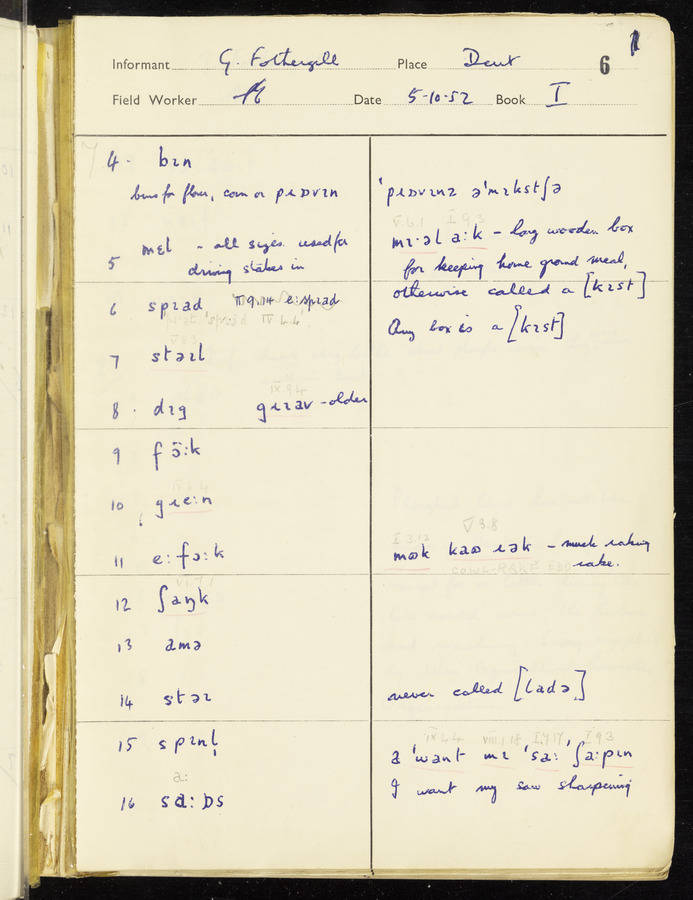 Informant G. Fothergill Place Dent 6 1
Field Worker Date 5-10-52 Book I
4. bɪn
bins for flour, corn or pɹɒvɪn
'pɹɒvɪnz ə'mɪkstʃə
V.6.1 I 9.3
5 mɛl - all sizes used for
driving stakes in
mɪ·əl a:k - long wooden box
for keeping home ground meal,
otherwise called a [kɪst]
6 spɪad II 9.14 e:spɪad
IV 4.4
Any box is a [kɪst]
7 staɪl
IX.9.4
8. dɪg gɹɪav - older
9 fɔ̈:k
10 gɹe:n
V 3.8
I 3.13
11 e: fɔ:k
mʊk kaʊ ɹək - muck raking
rake.
COWL-RAKE
VI.9.1
12 ʃaŋk
13 amə
14 stəɪ
never called [ladə]
15 spɪnl̩
IX 4.4 VIII.1.18 I.7.17 I 9.3
a 'want mɪ 'sa: 'ʃa:pɪn
I want my saw sharpening
a:
16 sɑ:ɒs